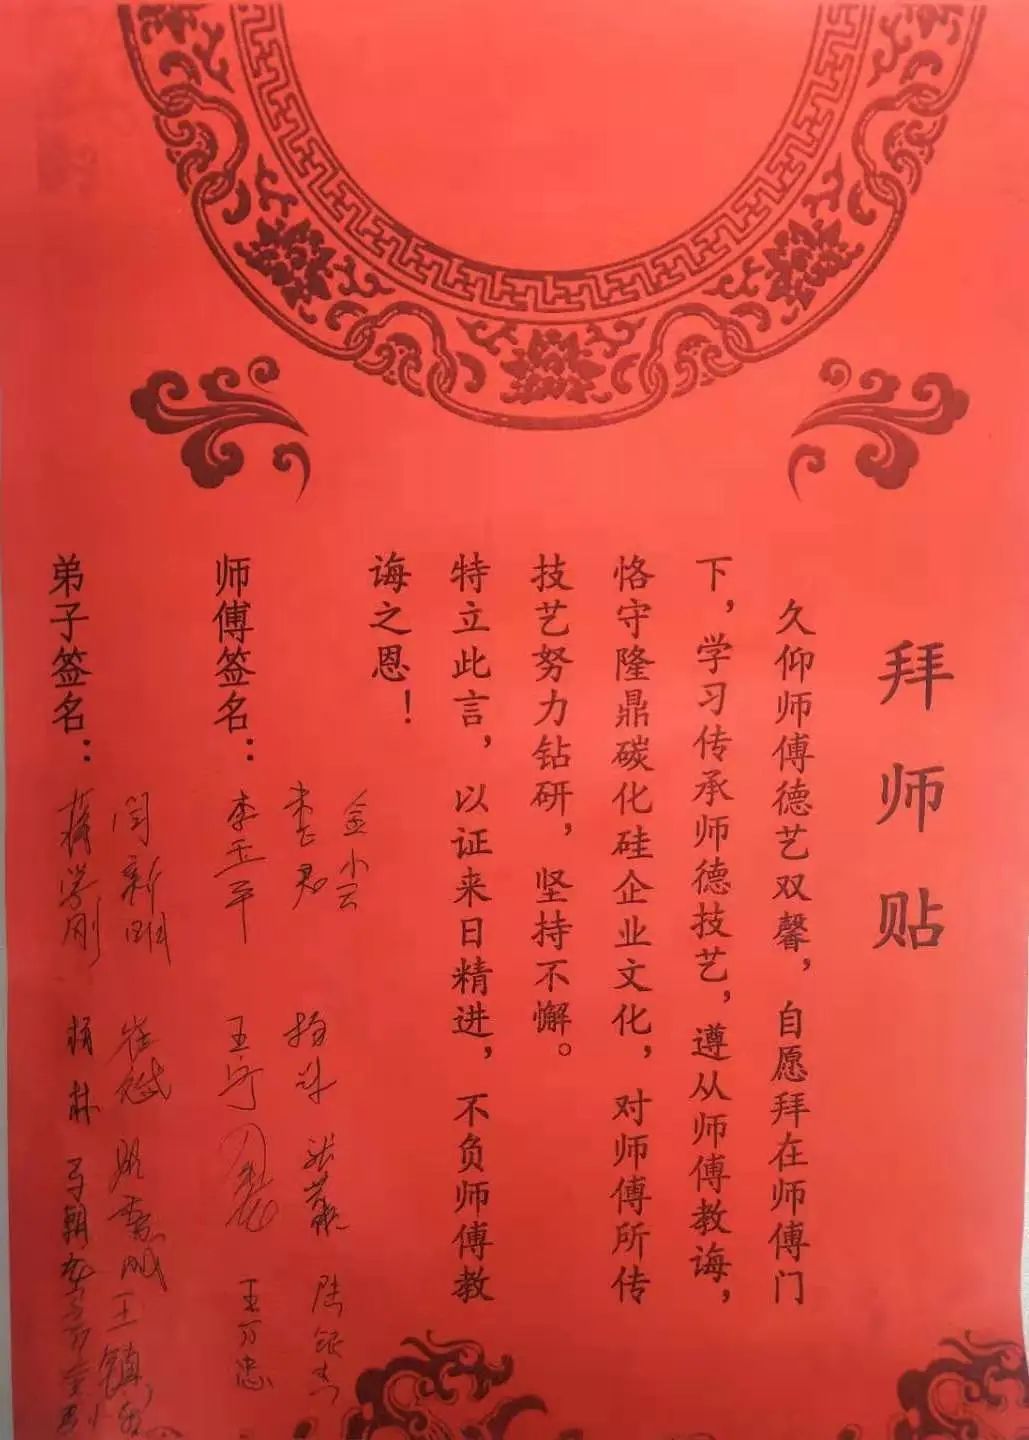 拜师贴
久仰师傅德艺双馨，自愿拜在师傅门
下，学习传承师德技艺，遵从师傅教诲，
恪守隆鼎碳化硅企业文化，对师傅所传
技艺努力钻研，坚持不懈。
特立此言，以证来日精进，不负师傅教
诲之恩！
金小云 陆银杰
杨斌
师傅签名：李玉平 王宁 王万忠
闫新刚 王镇
弟子签名：蒋学刚 杨林 马朝